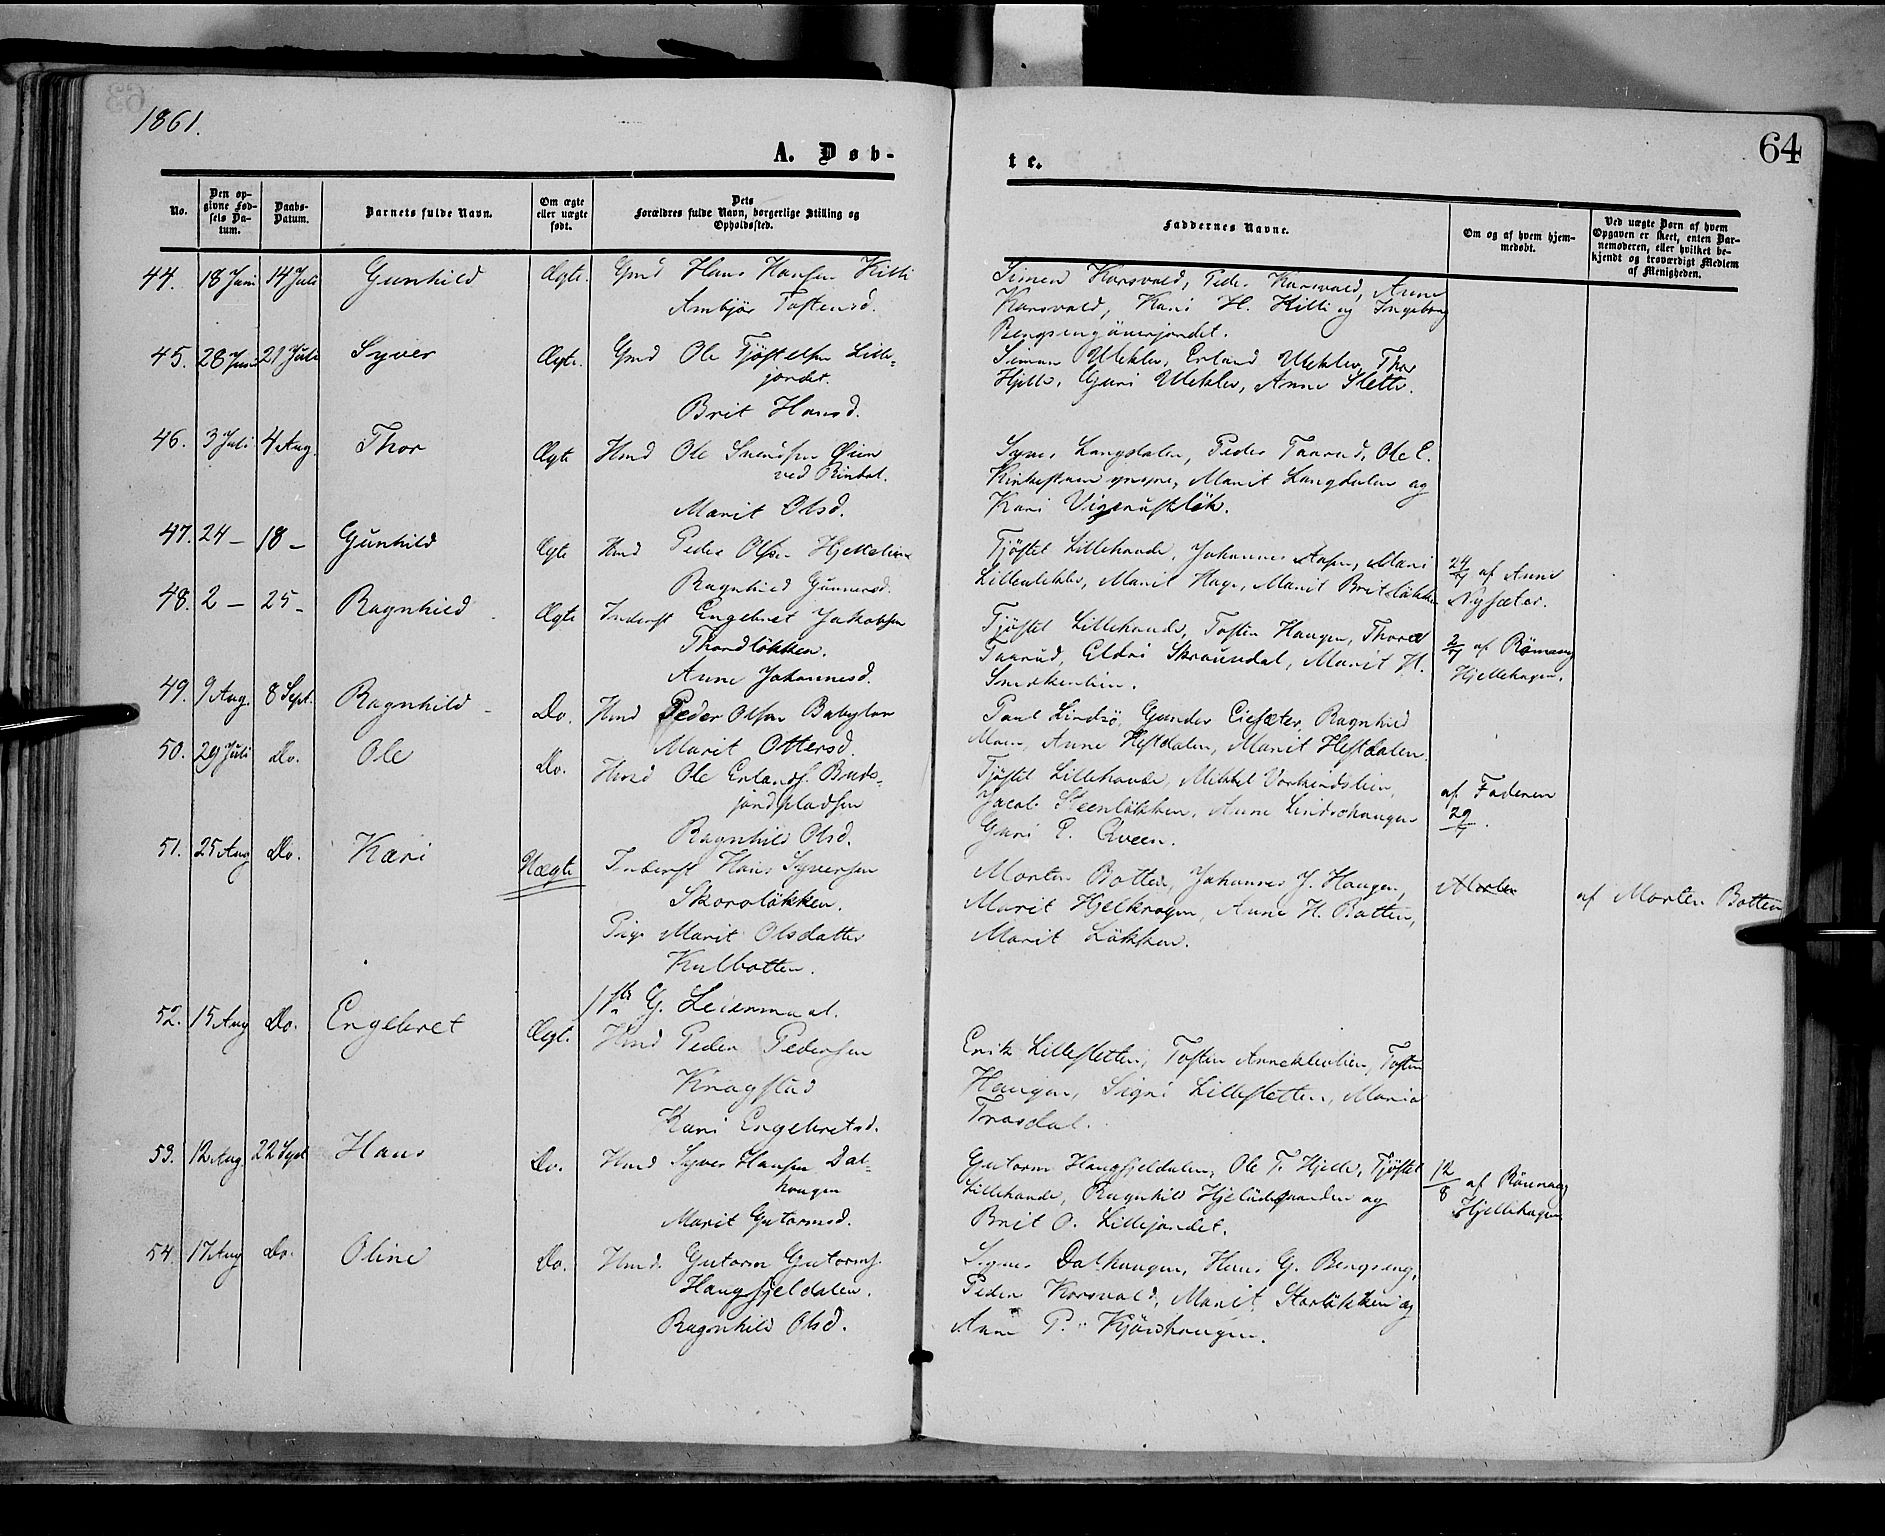 1861.
64
A. Døb-
te.
No.
Den op-
givne Fød-
sels Da-
tum.
Daabs-
Datum.
Barnets fulde Navn.
Om ægte
eller uægte
født.
Dets
Forældres fulde Navn, borgerlige Stilling og
Opholdssted.
Faddernes Navne.
Om og af hvem hjem-
medøbt.
Ved uægte Børn af hvem
Opgaven er skeet, enten Bar-
nemoderen, eller hvilket be-
kjendt og troværdigt Medlem
af Menigheden.
44. 18 Juni 14 Juli Gunhild Ægte. Gmd Hans Hansen Killi
Ambjør Tostensd.
Simen Korsvold, Peder Korsvold, Anne
Korsvold, Kari H. Killi og Ingeborg
45. 28 Juni 21 Juli Syver Ægte. Gmd Ole Tjøstelsen Lille-
jordet.
Brit Hansd.
Simen Ulekler, Erland Ulekler, Thor
Hjelle, Guri Ulekler, Anne Slette.
46. 3 Juli 4 Aug. Thor Ægte Hmd Ole Svendsen Øien
ved Rindal.
Marit Olsd.
Syver Langdalen, Peder Taarud, Ole E.
Marit Langdalen og
Kari
47. 24 - 18 - Gunhild Ægte Hmd Peder Olsen
Ragnhild Gunnersd.
Tjøstel Lillehaade, Johannes Aasen, Mari
Marit Hage, Marit Britsløkken
24/7 af Anne
Nysæter.
48. 2 - 25 - Ragnhild Ægte Inderst Engebret Jakobsen
Thordløkken.
Anne Johannesd.
Tjøstel Lillehaade, Tosten Haugen, Thord
Taarud, Eldri Skraundal, Marit H.
2/7 af Rønnaug
Hjellehagen.
49. 9 Aug. 8 Sept. Ragnhild Do. Hmd Peder Olsen Babylon
Marit Ottersd.
Paul Lindsø, Gunder Eiesæter, Ragnhild
Moen, Anne Hestdalen, Marit Hestdalen.
50. 29 Juli Do. Ole Do. Hmd Ole Erlands.
Ragnhild Olsd.
Tjøstel Lillehaade, Mikkel
Jacob Steenløkken, Anne Lindsøhaugen
Guri P. Qveen.
af Faderen
29/7.
51. 25 Aug Do. Kari Uægte Inderst Hans Syversen
Skoroløkken.
Pige Marit Olsdatter
Kulbotten.
1ste G. Leiermaal.
Morten Botten, Johannes J. Haugen,
Marit Hjelkrogen, Anne H. Botten,
Marit Løkken.
Morten
af Morten Botten
52. 15 Aug Do. Engebret Ægt. Hmd Peder Pedersen
Knagstad
Kari Engebretsd.
Erik Lillesletten, Tosten Anneklevlien, Tosten
Haugen, Sigri Lillesletten, Maria
Trosdal.
53. 12 Aug. 22 Sept Hans Do. Hmd Syver Hansen Dal-
haugen
Marit Gutormsd.
Gutorm Haugfjeldalen, Ole T. Hjelle, Tjøstel
Lillehaade, Ragnhild og
Brit O. Lillejordet.
12/8 af Rønnaug
Hjellehagen
54. 17 Aug Do. Oline Do. Hmd. Gutorm Gutorms.
Haugfjeldalen.
Ragnhild Olsd.
Syver Dalhaugen, Hans G. Bengseng,
Peder Korsvold, Marit Storløkken og
Anne P. Kjørshaugen.